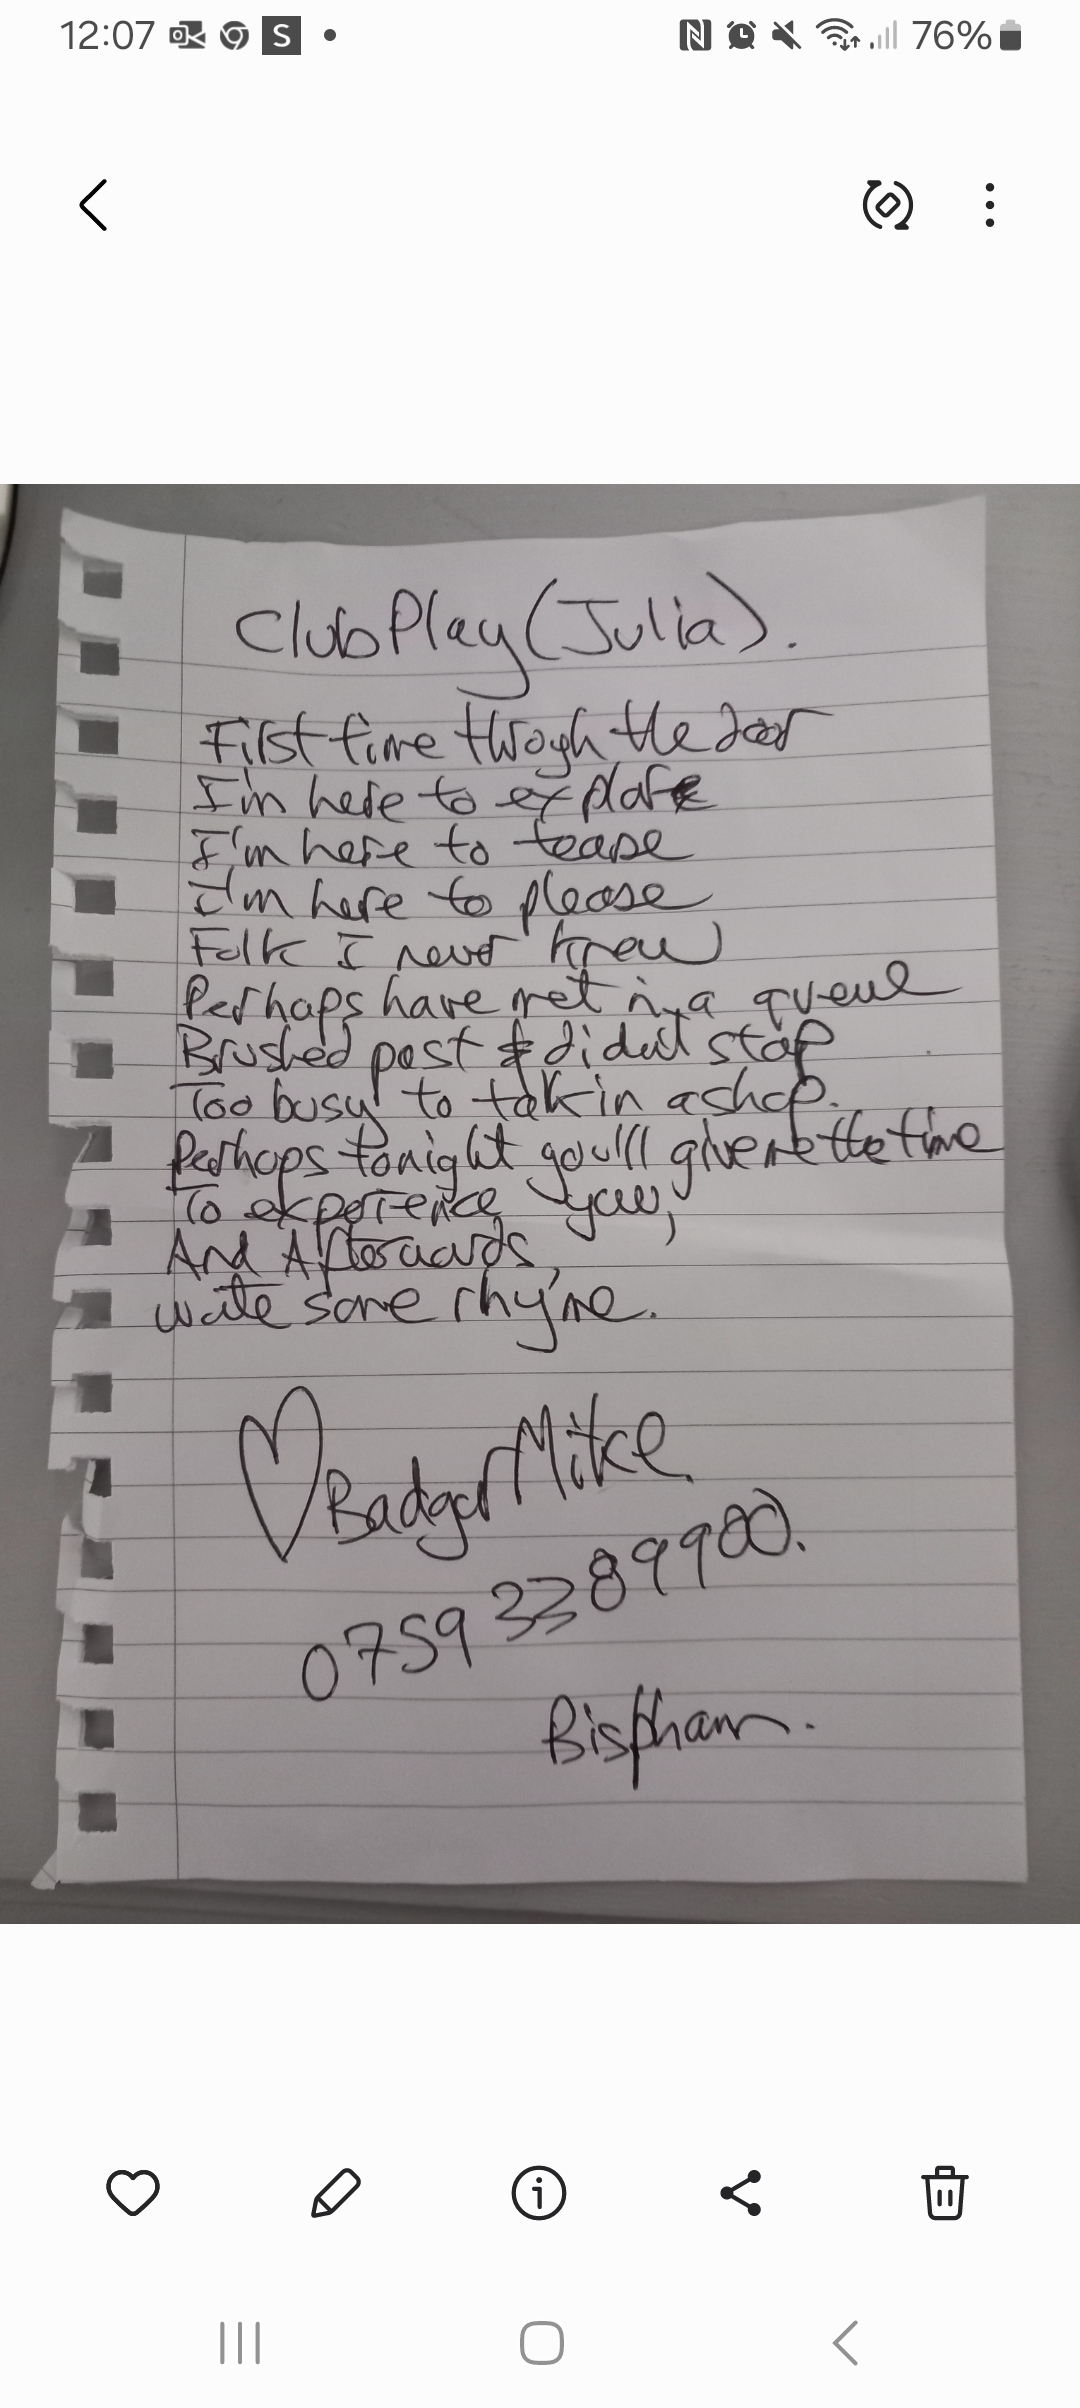 12:07
76%
Club Play (Julia).
First time through the door
I'm here to explore
I'm here to tease
I'm here to please
Folk I never knew
Perhaps have met in a queue
Brushed past & didn't stop
Too busy to talk in a shop.
Perhaps tonight you'll give me the time
To experience you,
And Afterwards,
write some rhyme.
Badger Mike.
0759 3389900.
Bispham.